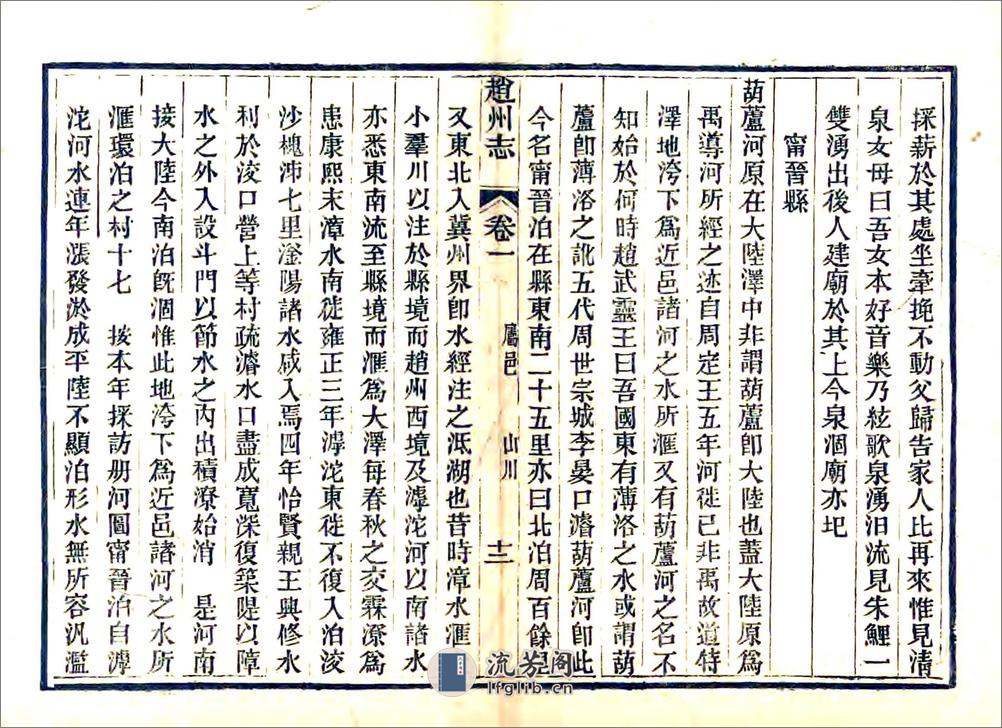 採薪於其處坐牽挽不動父歸告家人比再來惟見清
泉女母曰吾女本好音樂乃絃歌泉湧汩流見朱鯉一
雙湧出後人建廟於其上今泉涸廟亦圯
甯晉縣
葫蘆河原在大陸澤中非謂葫蘆卽大陸也蓋大陸原爲
禹導河所經之迹自周定王五年河徙已非禹故道特
澤地洿下爲近邑諸河之水所滙又有葫蘆河之名不
知始於何時趙武靈王曰吾國東有薄洛之水或謂葫
蘆卽薄洛之訛五代周世宗城李晏口濬葫蘆河卽此
今名甯晉泊在縣東南二十五里亦曰北泊周百餘
趙州志
卷一
屬邑
山川
十二
又東北入冀州界卽水經注之泜湖也昔時漳水滙
小羣川以注於縣境而趙州西境及滹沱河以南諸水
亦悉東南流至縣境而滙爲大澤每春秋之交霖潦爲
患康熙末漳水南徙雍正三年滹沱東徙不復入泊淩
沙槐沛七里滏陽諸水咸入焉四年怡賢親王興修水
利於淩口營上等村疏濬水口盡成寬深復築隄以障
水之外入設斗門以節水之內出積潦始消　是河南
接大陸今南泊旣涸惟此地洿下爲近邑諸河之水所
滙環泊之村十七　按本年採訪册河圖甯晉泊自滹
沱河水連年漲發淤成平陸不顯泊形水無所容汎濫
流芳阁
lfglib.cn